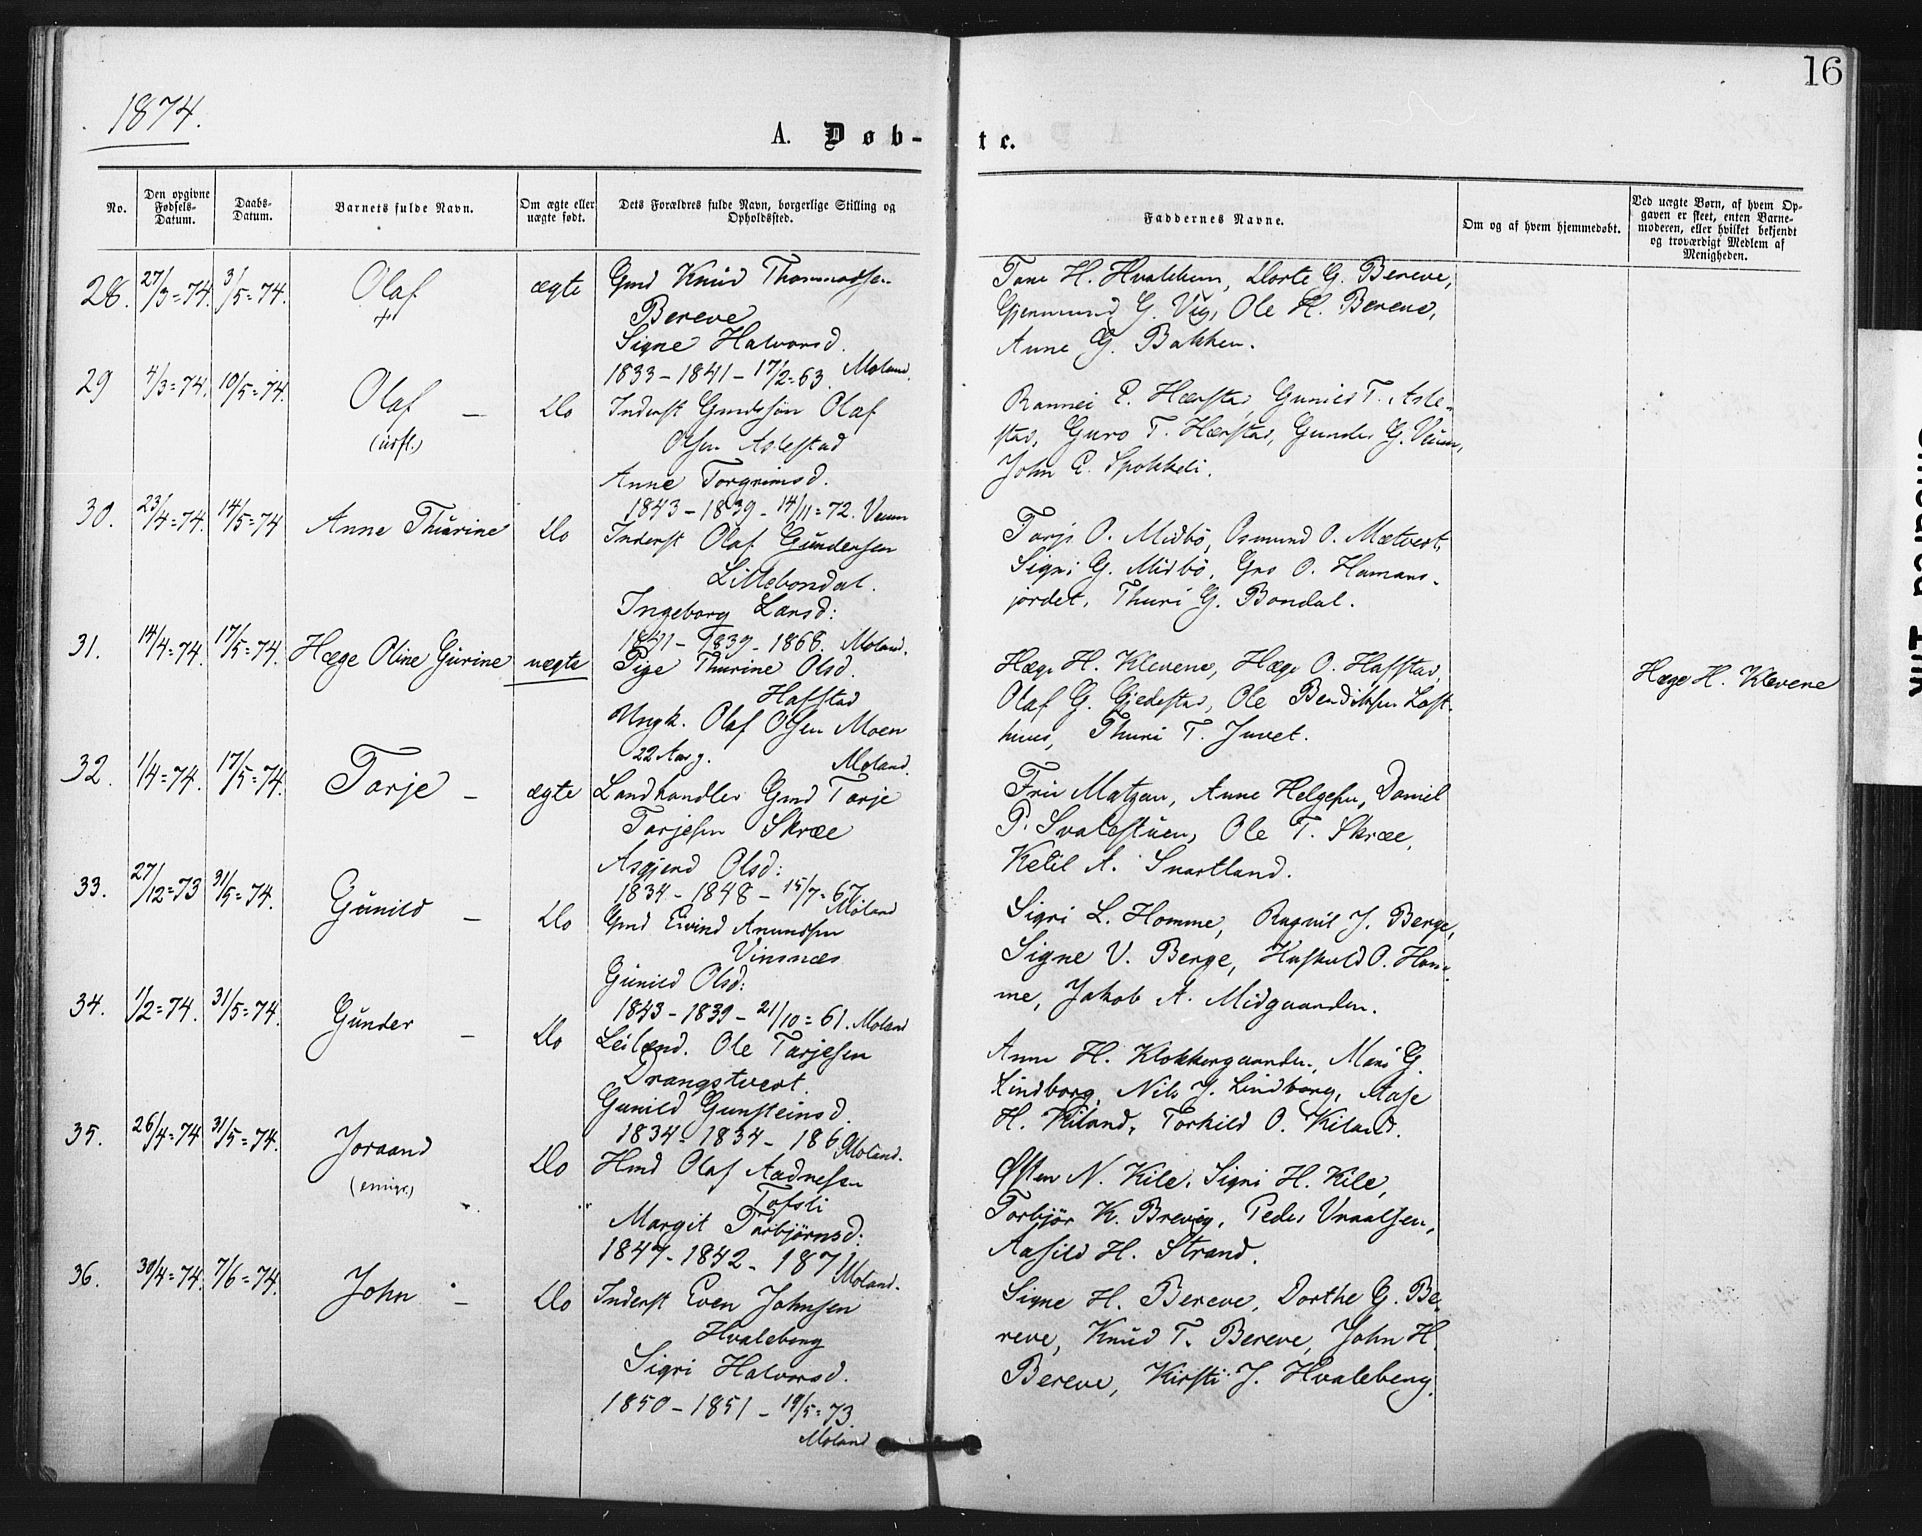 1874.
16
A. Døb-
te.
No.
Den opgivne Fødsels-Datum.
Daabs-Datum.
Barnets fulde Navn.
Om ægte eller uægte født.
Dets Forældres fulde Navn, borgerlige Stilling og Opholdssted.
Faddernes Navne.
Om og af hvem hjemmedøbt.
Ved uægte Børn, af hvem Opgaven er skeet, enten Barnemoderen, eller hvilket bekjendt og troværdigt Medlem af Menigheden.
28. 27/3=74. 3/5=74. Olaf ægte Gmd Knud
Bereve
Signe Halvorsd.
1833-1841-17/2=63. Moland.
Tone H. Dorte G. Bereve,
G. Vig, Ole H. Bereve,
Anne G. Bakken.
29 4/3=74. 10/5=74. Olaf - Do Inderst Gmdssøn Olaf
(udfl.)
Olsen Aslestad
Anne Torgrimsd.
1843-1839-14/11=72. Veum
E. Hærstad, Gunild T. Asle-
stad, Guro T. Hærstad, Gunder G. Veum,
John E. Spokkeli.
30. 23/4=74. 14/5=74 Anne Thurine Do Inderst Olaf Gundersen
Lillebondal.
Ingeborg Larsd:
1841-1839-1868. Moland.
Tarje O. Midbö, Osmund O.
Sigri G. Midbö, Gro O. Hamans-
jordet, Thuri G. Bondal.
31. 14/4=74. 17/5=74. Hæge Oline Gurine uægte Pige Thurine Olsd.
Hafstad
Ungk. Olaf Olsen Moen
22 Aar g. Moland.
Hæge H. Klevene, Hæge O. Hafstad,
Olaf G. Gjedestad, Ole Bendiksen Loft-
huus, Thuri T. Juvet.
Hæge H. Klevene
32. 1/4=74. 17/5=74. Tarje - ægte Landhandler Gmd Tarje
Tarjesen Skræe
Asgjerd Olsd:
1834-1848-15/7=67
Moland
Anne Helgesen, Daniel
P. Svalestuen, Ole T. Skræe,
Ketil A. Svartland.
33. 27/12=73 31/5=74. Gunild - Do Gmd Eivind Anundsen
Vinsnæs
Gunild Olsd:
1843-1839-21/10=61. Moland
Sigri L. Homme, Ragnil J. Berge,
Signe V. Berge, O. Hom-
me, Jakob A. Midgaarden.
34. 1/2=74. 31/5=74. Gunder - Do Leilænd. Ole Tarjesen
Drangstveit.
Gunild Gunsteinsd.
1834-1834- Moland.
Anne H. Klokkergaarden, Mari G.
Lindborg, Nils J. Lindborg, Aase
H. Kiland, Torkild O. Kiland.
35. 26/4=74 31/5=74. Joraand Do Hmd Olaf Aadnesen
(emigr.)
Tofsli
Margit Torbjörnsd:
1847-1842-187 Moland.
Øften N. Kile, Sigri H. Kile,
Torbjör K. Brevig, Peder Vraalsen,
Aasild H. Strand.
36. 30/4=74. 7/6=74. John - Do Inderst Even Johnsen
Hvaleberg
Sigri Halvorsd.
1850-1851-19/5=73.
Moland
Signe H. Bereve, Dorthe G. Be-
reve, Knud T. Bereve, John H.
Bereve, Kirsti J. Hvaleberg.